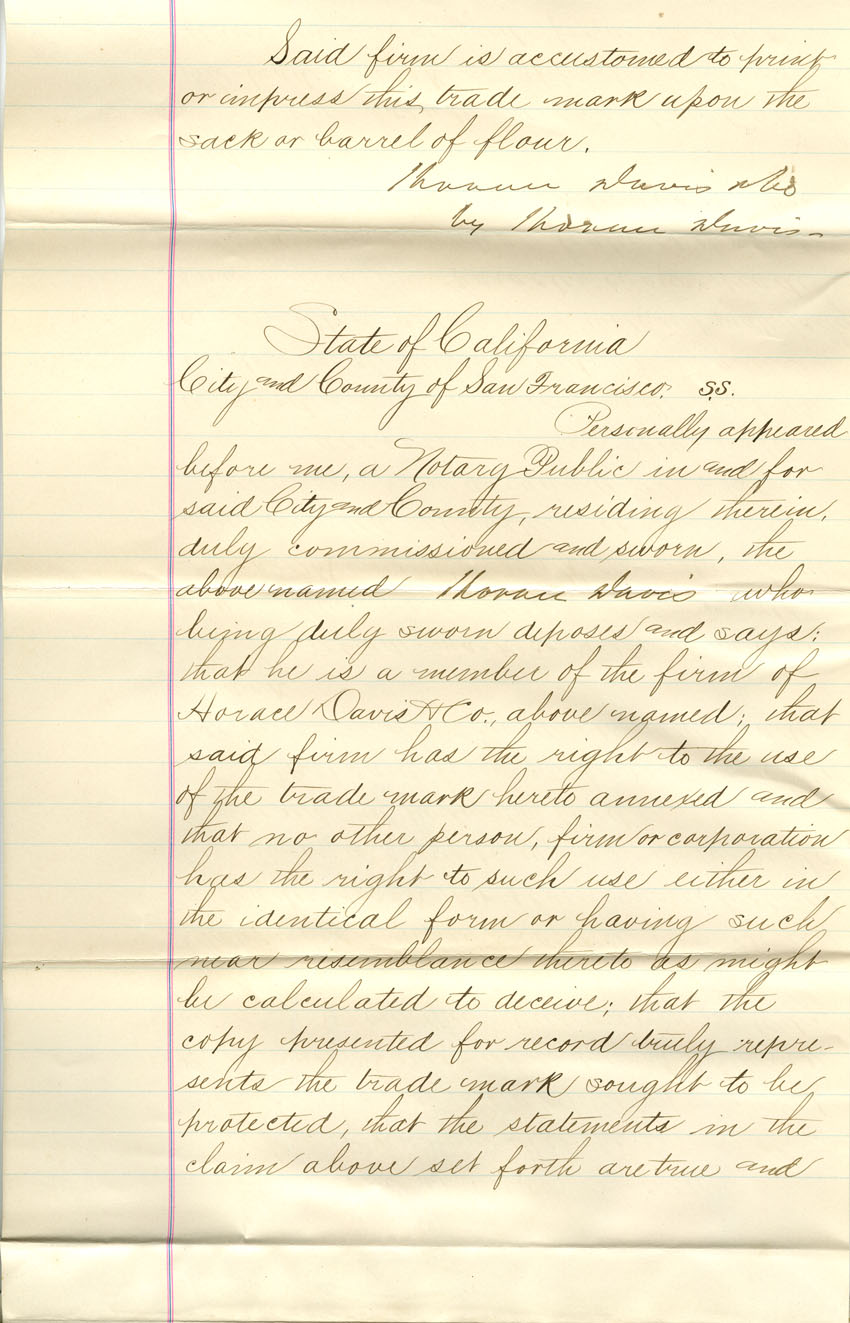 Said firm is accustomed to print
or impress this trade mark upon the
sack or barrel of flour.
Horace Davis & Co
by Horace Davis-
State of California
City and County of San Francisco. s.s.
Personally appeared
before me, a Notary Public in and for
said City and County, residing therein,
duly commissioned and sworn, the
above named Horace Davis who
being duly sworn deposes and says:
that he is a member of the firm of
Horace Davis & Co., above named; that
said firm has the right to the use
of the trade mark hereto annexed and
that no other person, firm or corporation
has the right to such use either in
the identical form or having such
near resemblance thereto as might
be calculated to deceive; that the
copy presented for record truly repre-
sents the trade mark sought to be
protected, that the statements in the
claim above set forth are true and